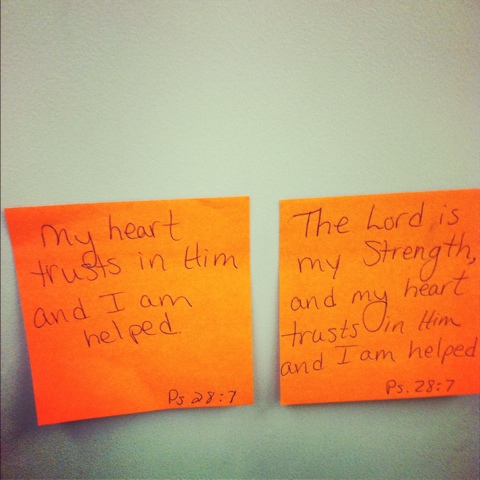 My heart
trusts in Him
and I am
helped.
Ps 28:7
The Lord is
my Strength,
and my heart
trusts in Him
and I am helped
Ps. 28:7